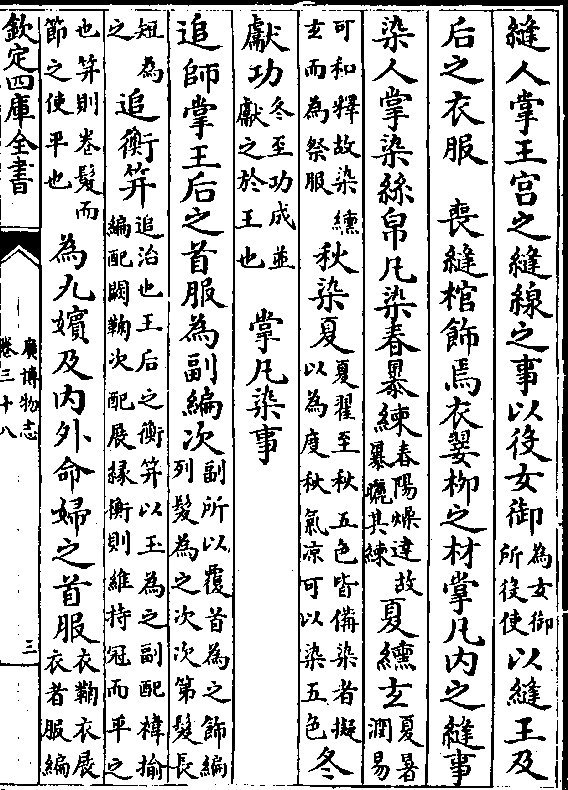 縫人掌王宫之縫線之事以役女御為女御所役使以縫王及
后之衣服　喪縫棺飾焉衣翣柳之材掌凡内之縫事
染人掌染絲帛凡染春暴練春陽燥達故暴曬其練夏纁玄夏暑潤易
可和釋故染纁玄而為祭服秋染夏夏翟至秋五色皆備染者擬以為度秋氣凉可以染五色冬
獻功冬至功成並獻之於王也　掌凡染事
追師掌王后之首服為副編次副所以覆首為之飾編列髮為之次次第髮長
短為之追衡笄追治也王后之衡笄以玉為之副配褘揄編配闕鞠次配展緣衡則維持冠而平之
也笄則卷髮而節之使平也為九嬪及内外命婦之首服衣鞠衣展衣者服編
欽定四庫全書
廣博物志
卷三十八
三